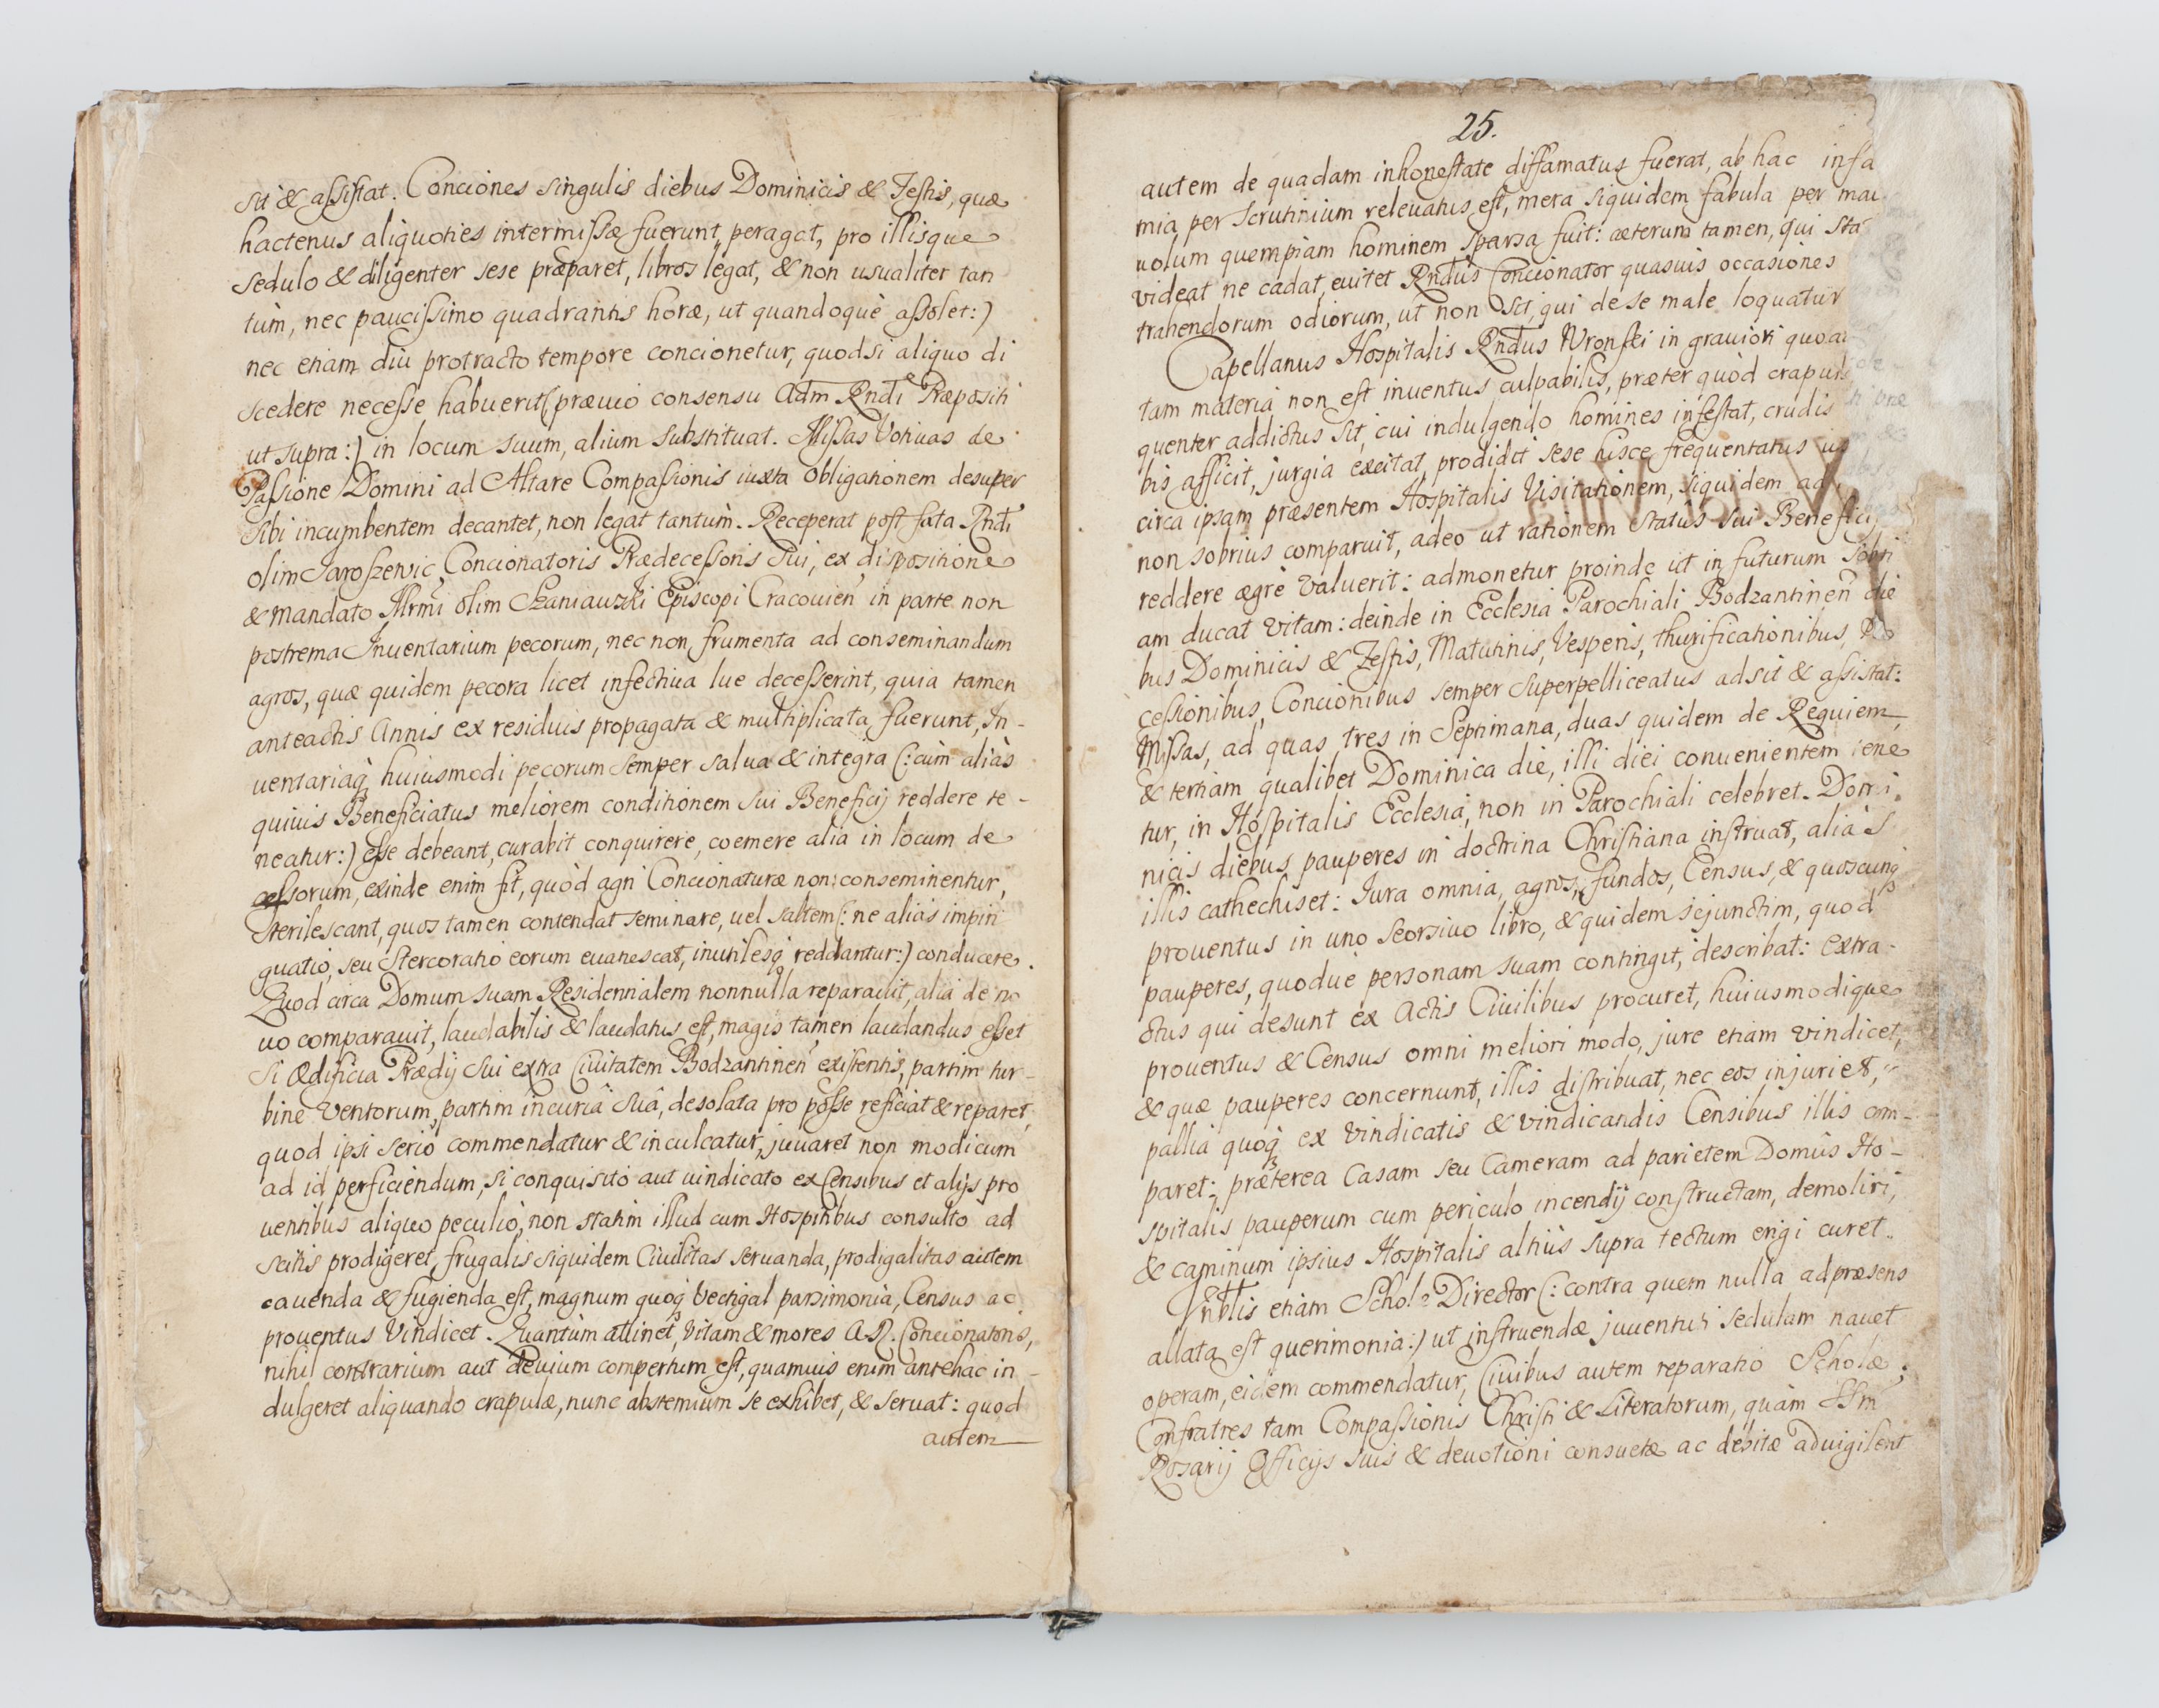 sit & assistat. Conciones singulis diebus Dominicis & Festis, quæ
hactenus aliquoties intermissæ fuerunt, peragat, pro illisque
sedulo & diligenter sese præparet, libros legat, & non usualiter tan
tùm, nec paucissimo quadrantis horæ, ut quandoquè assolet:)
nec etiam diu protracto tempore concionetur, quodsi aliquo di
scedere necesse habuerit (præuio consensu Adm Rndi Præpositi
ut supra:) in locum suum, alium substituat. Missas Votiuas de
Passione Domini ad Altare Compassionis iuxta obligationem desuper
sibi incumbentem decantet, non legat tantùm. Receperat post fata Rndi
olim Jaroszewic, Concionatoris Prædecessoris sui, ex dispositione
& mandato Illrmi olim Szaniawski Episcopi Cracouien in parte non
postrema Inuentarium pecorum, nec non frumenta ad conseminandum
agros, quæ quidem pecora licet infectiua lue decesserint, quia tamen
anteactis Annis ex residuis propagata & multiplicata fuerunt, In-
uentariaq huiusmodi pecorum semper salua & integra (:cùm aliàs
quiuis Beneficiatus meliorem conditionem sui Beneficij reddere te-
neatur:) esse debeant, curabit conquirere, coemere alia in locum de
cessorum, exinde enim fit, quòd agri Concionaturæ non conseminentur,
sterilescant, quos tamen contendat seminare, uel saltem (: ne aliàs impin
guatio, seu stercoratio eorum euanescat, inutilesq reddantur:) conducere.
Quod circa Domum suam Residentialem nonnulla reparauit, alia de no
uo comparauit, laudabilis & laudatus est, magis tamen laudandus esset
si Ædificia Prædij sui extra Ciuitatem Bodzantinen existentis, partim tur-
bine Ventorum, partim incuriâ suâ, desolata pro posse reficiat & reparet,
quod ipsi seriò commendatur & inculcatur, juuaret non modicum
ad id perficiendum, si conquisito aut uindicato ex Censibus et alijs pro
uentibus aliquo peculio, non statim illud cum Hospitibus consulto ad
scitis prodigeret, frugalis siquidem Ciuilitas seruanda, prodigalitas autem
cauenda & fugienda est, magnum quoq Vectigal parsimonia, Census ac
prouentus Vindicet. Quantùm attinet, Vitam & mores A. R. Concionatoris,
nihil contrarium aut deuium compertum est, quamuis enim antehac in-
dulgeret aliquando crapulæ, nunc abstemium se exhibet, & seruat: quod
autem
25.
autem de quadam inhonestate diffamatus fuerat, ab hac infa
mia per scrutinium releuatus est, mera siquidem fabula per mal
uolum quempiam hominem sparsa fuit: cæterum tamen, qui sta
videat ne cadat, euitet Rndus Concionator quasuis occasiones
trahendorum odiorum, ut non sit, qui de se male loquatur
Capellanus Hospitalis Rndus Wronski in grauiori
tam materia non est inuentus culpabilis, præter quòd
quenter addictus sit, cui indulgendo homines infestat, crudis
bis afficit, jurgia excitat, prodidit sese hisce frequentatus
circa ipsam præsentem Hospitalis Visitationem, siquidem ad
non sobrius comparuit, adeo ut rationem status sui Beneficij
reddere ægrè Valuerit: admonetur proinde ut in futurum sobri
am ducat vitam: deinde in Ecclesia Parochiali Bodzantinen die
bus Dominicis & Festis, Matutinis, Vesperis, thurificationibus, Pro
cessionibus, Concionibus semper superpelliceatus adsit & assistat:
Missas, ad quas tres in Septimana, duas quidem de Requiem,
& tertiam qualibet Dominica die, illi diei conuenientem tene
tur, in Hospitalis Ecclesia, non in Parochiali celebret. Domi
nicis diebus, pauperes in doctrina Christiana instruat, aliàs
illis cathechiset: Iura omnia, agros, fundos, Census, & quoscunq
prouentus in uno seorsiuo libro, & quidem sejunctim, quod
pauperes, quodue personam suam contingit, describat: extra-
ctus qui desunt ex Actis Ciuilibus procuret, huiusmodique
prouentus & Census omni meliori modo, jure etiam vindicet,
& quæ pauperes concernunt, illis distribuat, nec eos injuriet,
pallia quoq ex vindicatis & vindicandis Censibus illis com-
paret: præterea Casam seu Cameram ad parietem Domûs Ho-
spitalis pauperum cum periculo incendij constructam, demoliri,
& caminum ipsius Hospitalis altiùs supra tectum erigi curet.
etiam Scholæ Director (: contra quem nulla ad præsens
allata est querimonia:) ut instruendæ juuentuti sedulam nauet
operam, eidem commendatur, Ciuibus autem reparatio Scholæ.
Confratres tam Compassionis Christi & Literatorum, quàm SSmi
Rosarij Officijs suis & deuotioni consuetæ ac debitæ aduigilent